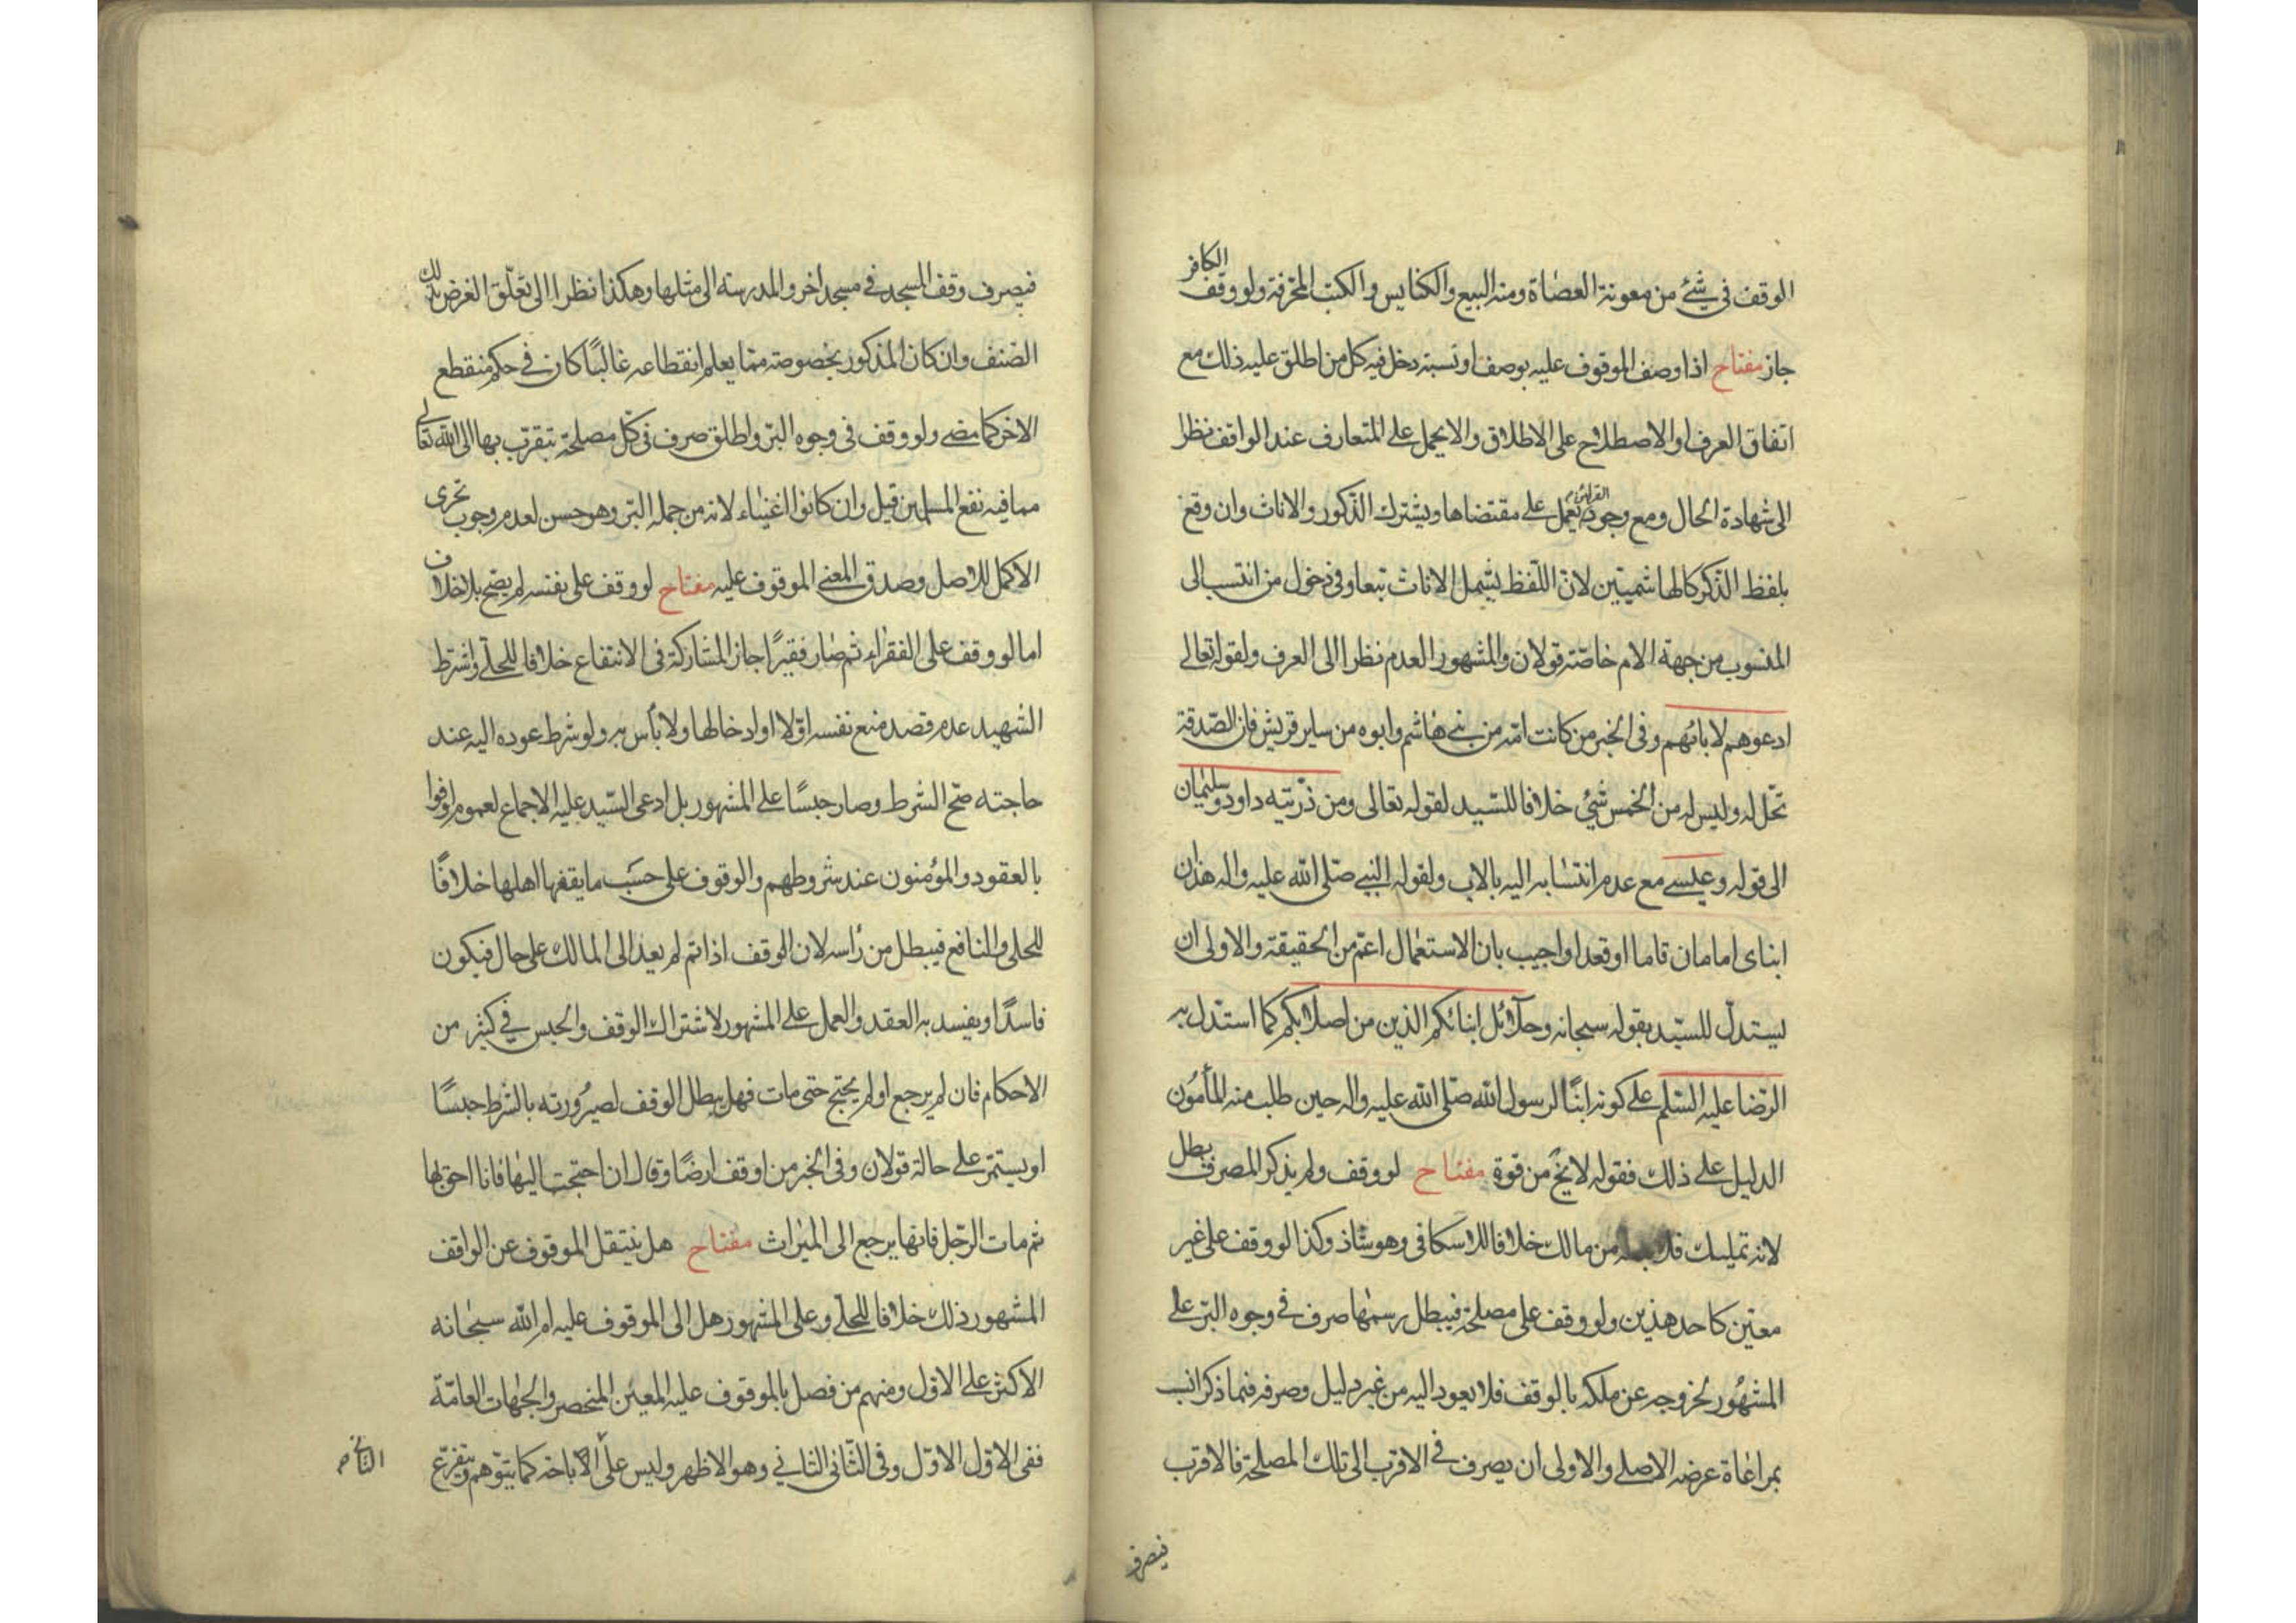 الوقف في شئ من معونة العصاة ومنه البيع والكنايس والكتب المحرفة ولو وقف الكافر
جاز مفتاح اذا وصف الموقوف عليه بوصف او نسبة دخل فيه كل من اطلق عليه ذلك مع
اتفاق العرف او الاصطلاح على الاطلاق والا يحمل على المتعارف عند الواقف نظرا
الى شهادة الحال ومع وجود القرائن يعمل على مقتضاها ويشترك الذكور والاناث وان وقع
بلفظ الذكر كالهاشميين لان اللفظ يشمل الاناث تبعا وفي دخول من انتسب الى
المنسوب من جهة الام خاصة قولان والمشهور العدم نظرا الى العرف ولقوله تعالى
ادعوهم لابائهم وفي الخبر من كانت امه من بني هاشم وابوه من ساير قريش فان الصدقة
تحل له وليس له من الخمس شئ خلافا للسيد لقوله تعالى ومن ذريته داود وسليمان
الى قوله وعيسى مع عدم انتسابه اليه بالاب ولقوله النبي صلى الله عليه واله هذان
ابناى امامان قاما او قعدا واجيب بان الاستعمال اعم من الحقيقة والاولى ان
يستدل للسيد بقوله سبحانه وحلائل ابنائكم الذين من اصلابكم كما استدل به
الرضا عليه السلم على كونه ابنا لرسول الله صلى الله عليه واله حين طلب منه المأمون
الدليل على ذلك فقوله لا يخ من قوة مفتاح لو وقف ولم يذكر المصرف بطل
لانه تمليك فلا من مالك خلافا للاسكافي وهو شاذ وكذا لو وقف على غير
معين كاحد هذين ولو وقف على مصلحة فيبطل رسمها صرف في وجوه البر على
المشهور لخروجه عن ملكه بالوقف فلا يعود اليه من غير دليل وصرفه فيما ذكر انسب
بمراعاة عرضه الاصلي والاولى ان يصرف في الاقرب الى تلك المصلحة فالاقرب
فيصرف
فيصرف وقف المسجد في مسجد اخر والمدرسة الى مثلها وهكذا نظرا الى تعلق الغرض بذلك
الصنف وان كان المذكور بخصوصه مما يعلم انقطاعه غالبا كان في حكم منقطع
الاخر كما مضى ولو وقف في وجوه البر واطلق صرف في كل مصلحة يتقرب بها الى الله تعالى
مما فيه نفع المسلمين قيل وان كانوا اغنياء لانه من جملة البر وهو حسن لعدم وجوب تحرى
الاكمل للاصل وصدق المعنى الموقوف عليه مفتاح لو وقف على نفسه لم يصح بلا خلاف
اما لو وقف على الفقراء ثم صار فقيرا جاز المشاركة في الانتفاع خلافا للحلي واشترط
الشهيد عدم قصد منع نفسه اولا او ادخالها ولا بأس به ولو شرط عوده اليه عند
حاجته صح الشرط وصار حبسا على المشهور بل ادعى السيد عليه الاجماع لعموم اوفوا
بالعقود والمؤمنون عند شروطهم والوقوف على حسب ما يقفها اهلها خلافا
للحلي والنافع فيبطل من رأسه لان الوقف اذا تم لم يعد الى المالك على حال فيكون
فاسدا ويفسد به العقد والعمل على المشهور لاشتراك الوقف والحبس في كثير من
الاحكام فان لم يرجع او لم يحتج حتى مات فهل يبطل الوقف لصيرورته بالشرط حبسا
او يستمر على حالة قولان وفي الخبر من اوقف ارضا وقال ان احتجت اليها فانا احق بها
ثم مات الرجل فانها يرجع الى الميراث مفتاح هل ينتقل الموقوف عن الواقف
المشهور ذلك خلافا للحلي وعلى المشهور هل الى الموقوف عليه ام الله سبحانه
الاكثر على الاول ومنهم من فصل بالموقوف عليه المعين المنحصر والجهات العامة
ففي الاول الاول وفي الثاني الثاني وهو الاظهر وليس على الاباحة كما يتوهم ويتفرع